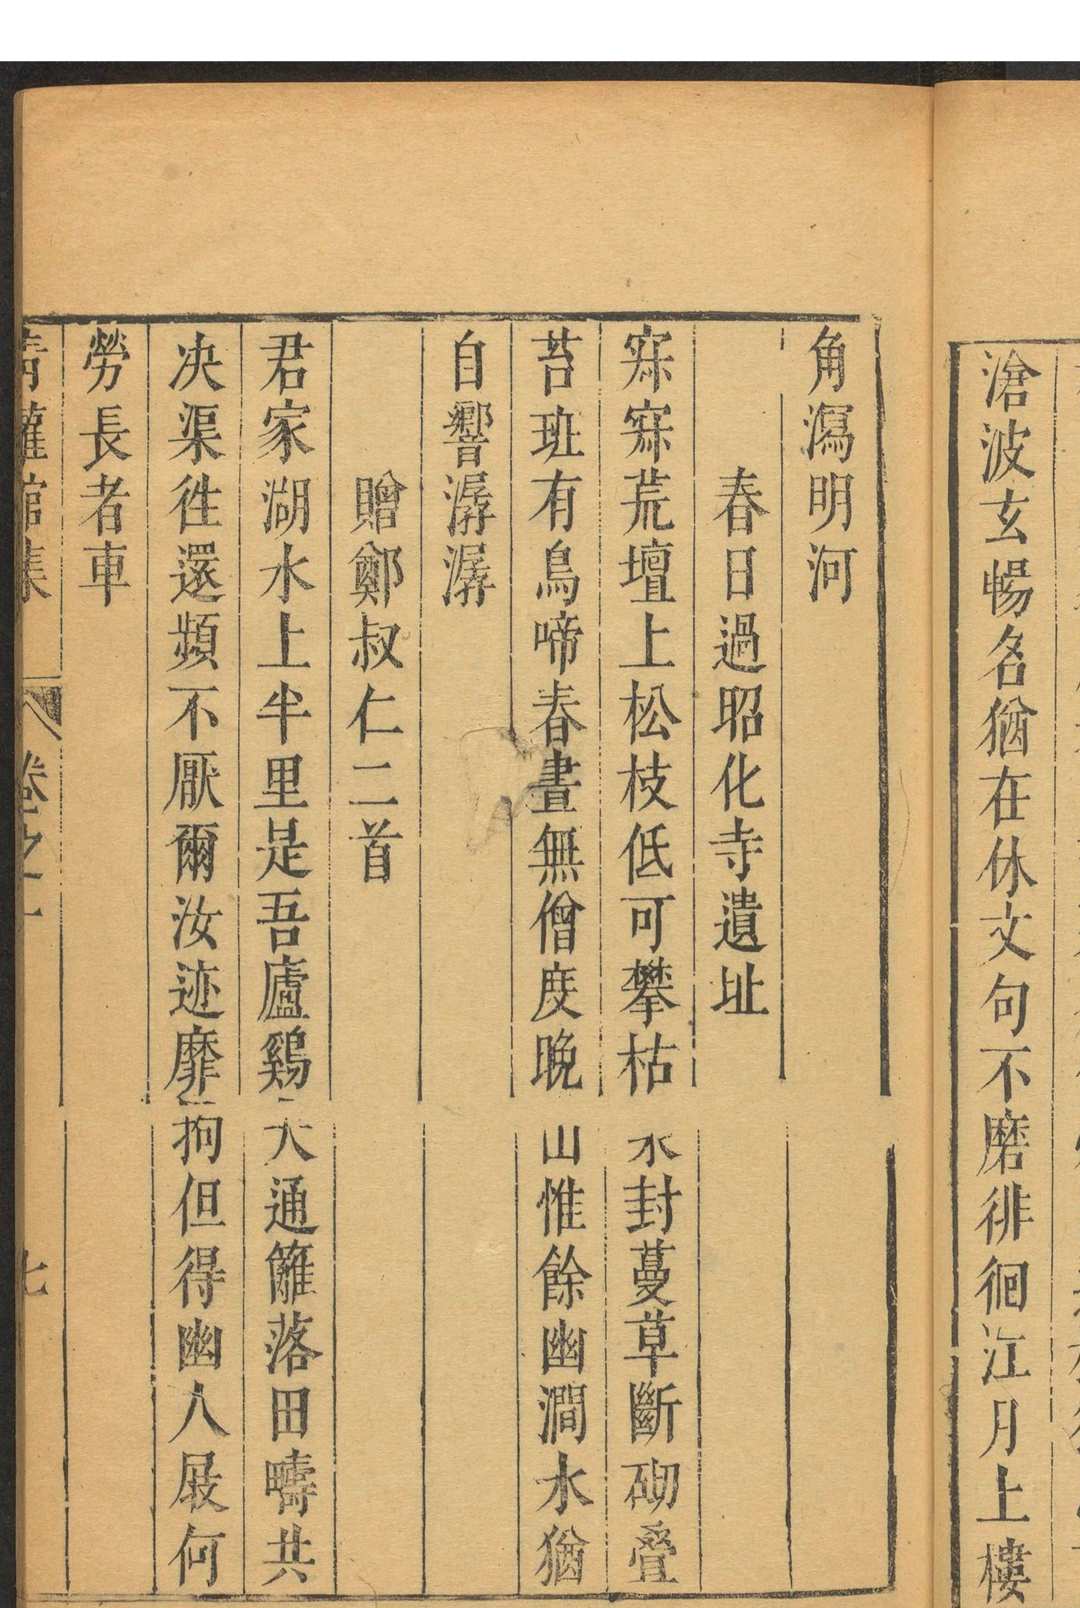 滄波玄暢名猶在休文句不磨徘徊江月上樓
角瀉明河
春日過昭化寺遺址
寂寂荒壇上松枝低可攀枯木封蔓草斷砌疊
苔班有鳥啼春晝無僧度晚山惟餘幽澗水猶
自響潺潺
贈鄭叔仁二首
君家湖水上半里是吾廬鷄犬通籬落田疇共
决渠徃還頻不厭爾汝迹靡拘但得幽人屐何
勞長者車
卷之一
七